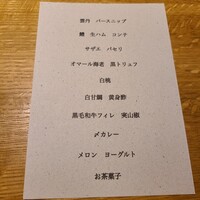 雲丹　パースニップ
鰻　生ハム　コンテ
サザエ　パセリ
オマール海老　黒トリュフ
白桃
白甘鯛　黄身酢
黒毛和牛フィレ　実山椒
〆カレー
メロン　ヨーグルト
お茶菓子